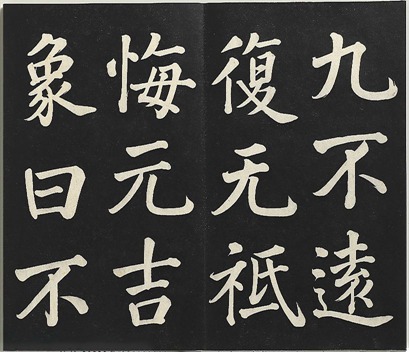 九不遠
復无祗
悔元吉
象曰不